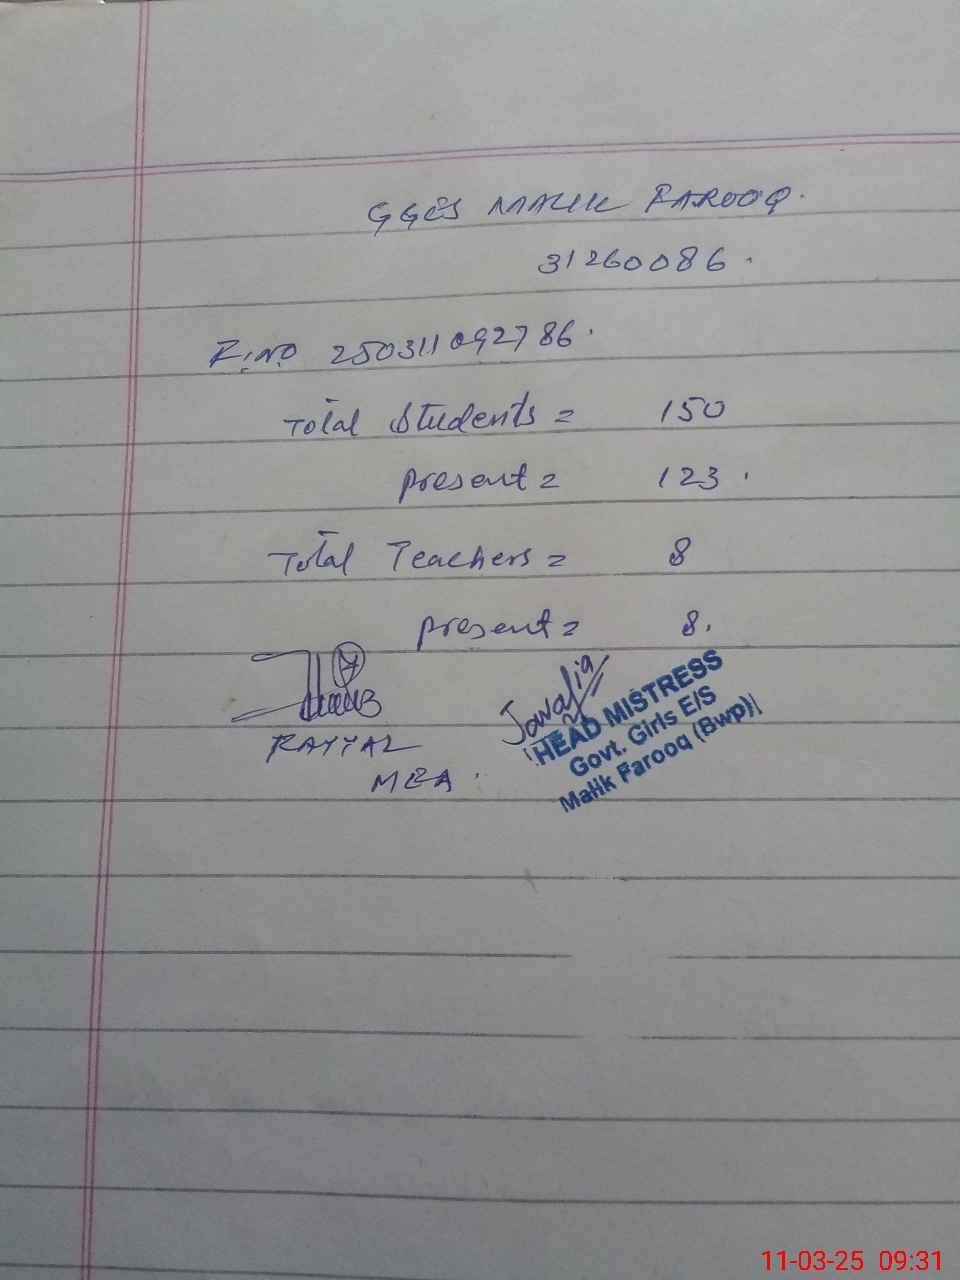 GGES MALIK FAROOQ.
31260086.
R.NO 250311092786.
Total Students = 150
present = 123.
Total Teachers = 8
present = 8.
HEAD MISTRESS
Govt. Girls E/S
Malik Farooq (Bwp)
MEA.
11-03-25 09:31